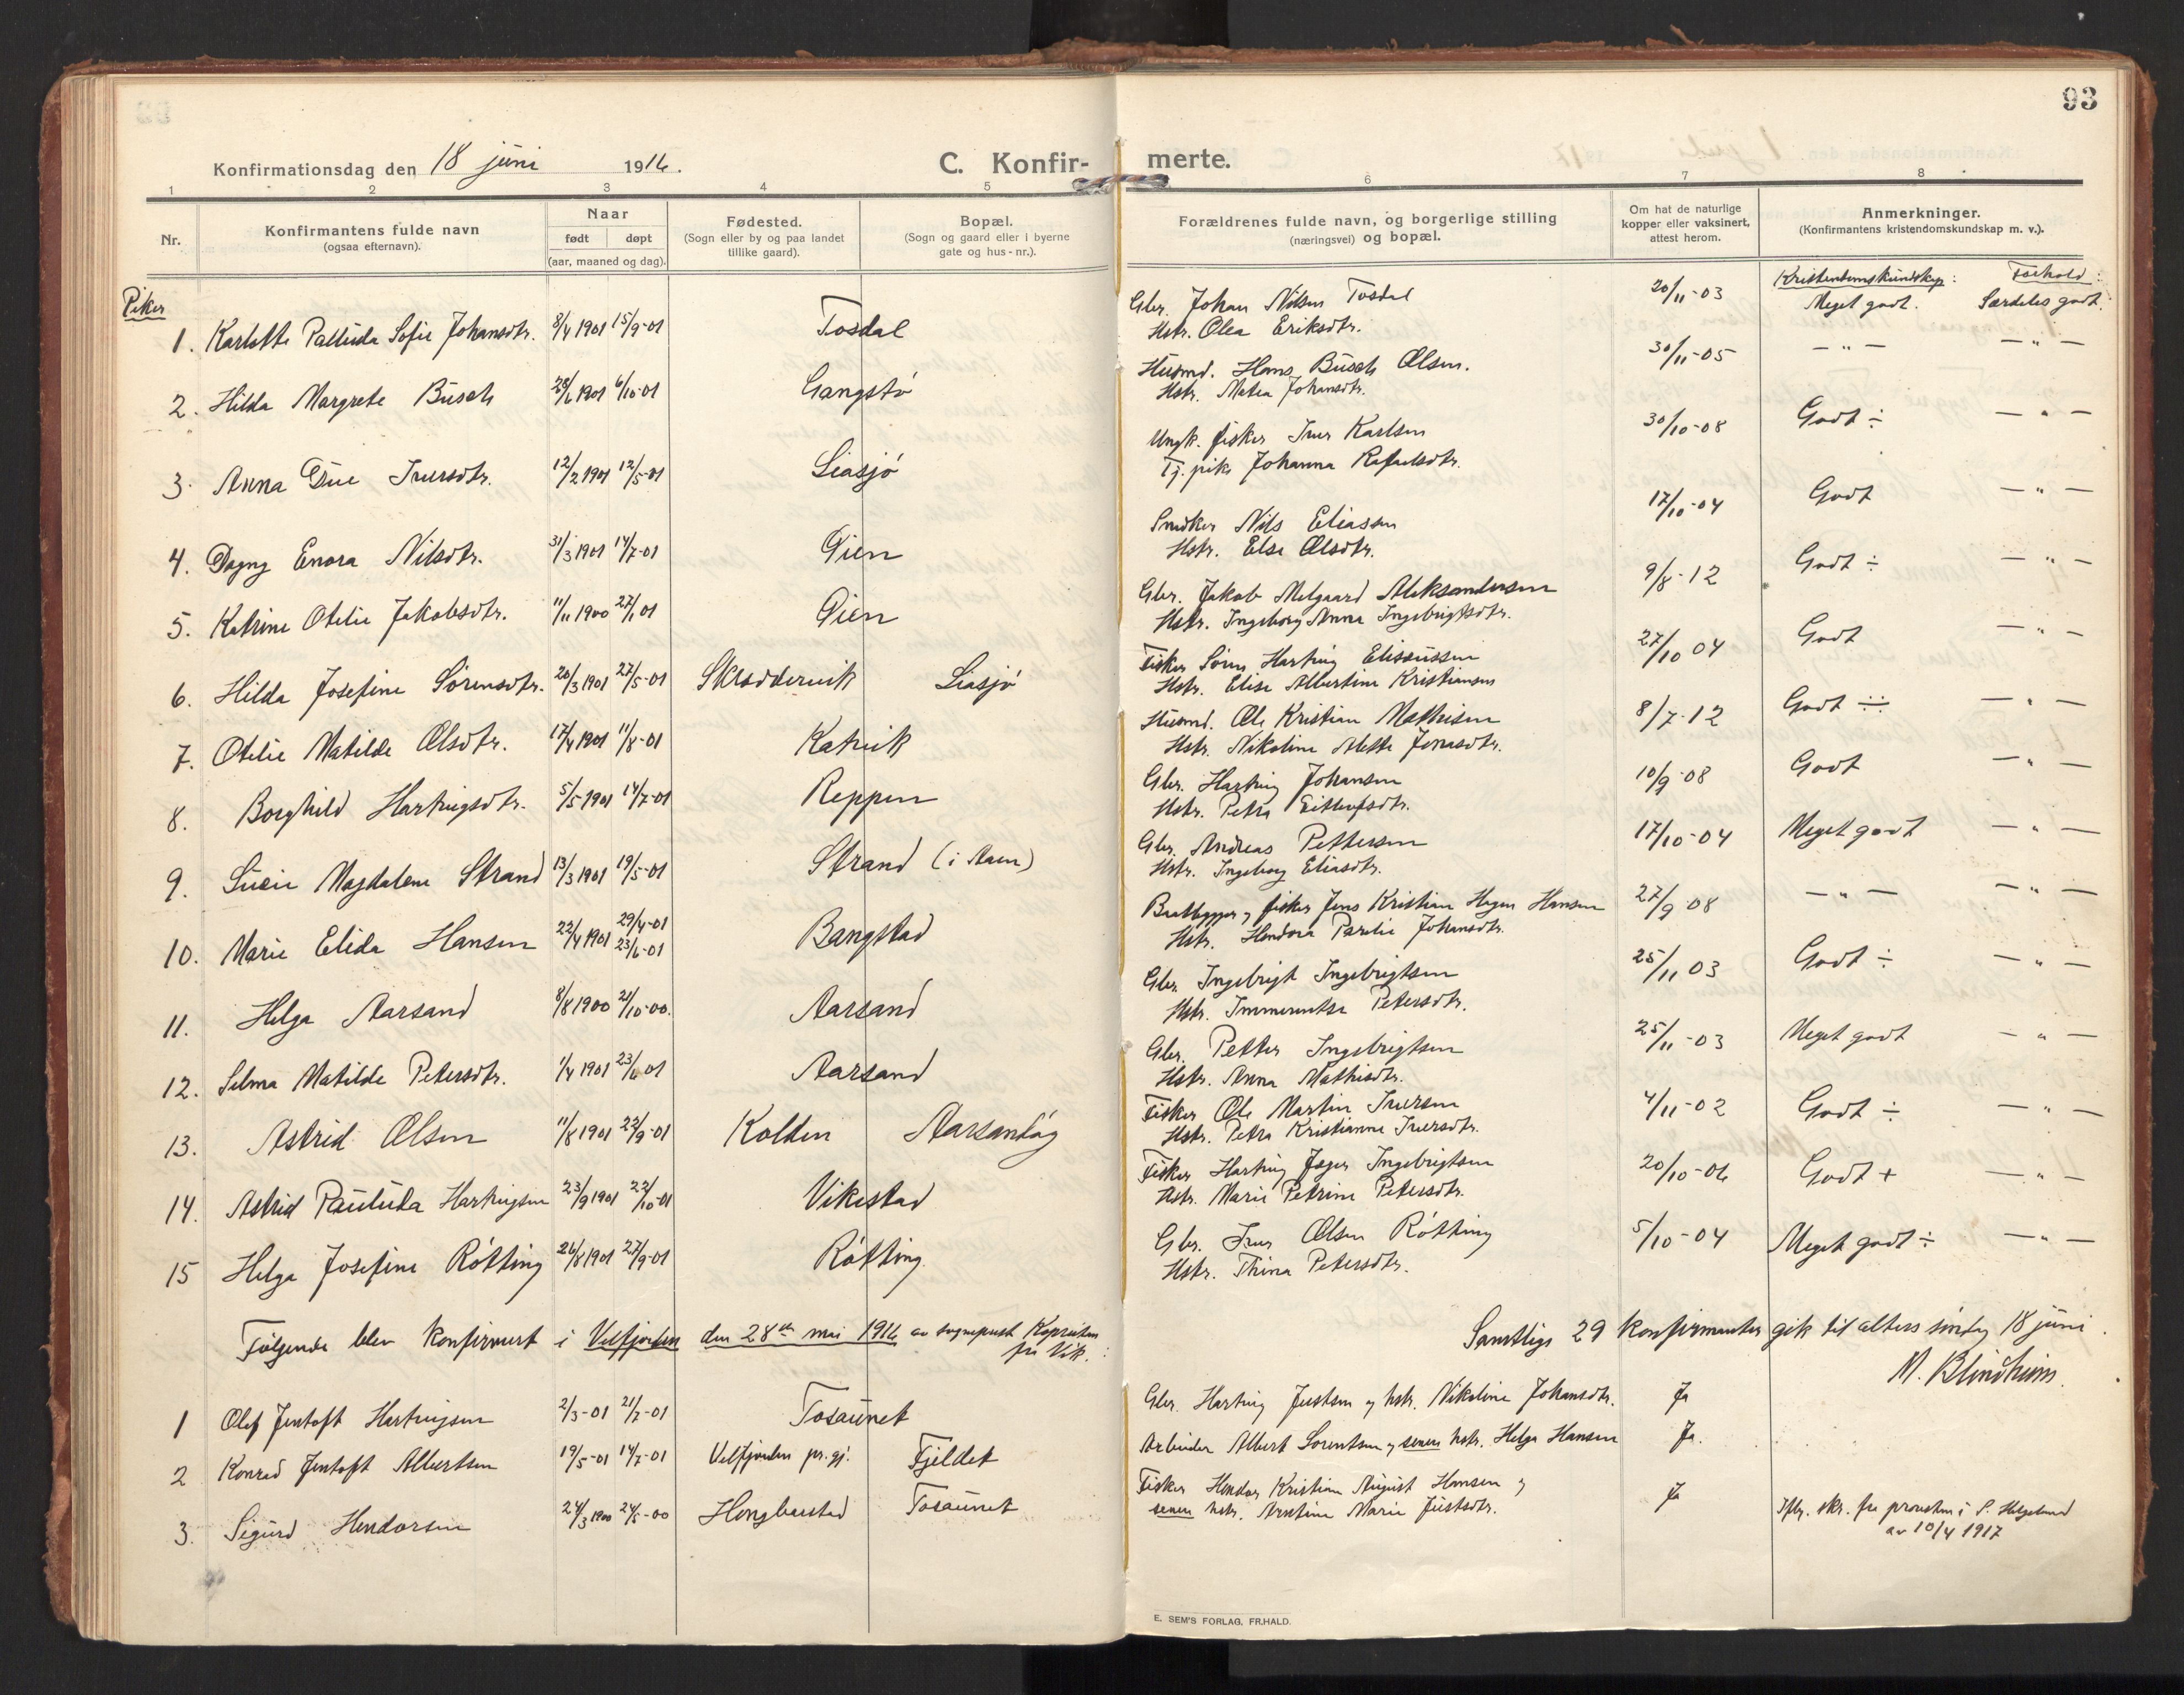 93
Konfirmationsdag den 18 juni 1916.
C. Konfirmerte.
1 2 3 4 5 6 7 8
Nr.
Konfirmantens fulde navn
(ogsaa efternavn).
Naar
født døpt
(aar, maaned og dag).
Fødested.
(Sogn eller by og paa landet
tillike gaard).
Bopæl.
(Sogn og gaard eller i byerne
gate og hus-nr.).
Forældrenes fulde navn, og borgerlige stilling
(næringsvei) og bopæl.
Om hat de naturlige
kopper eller vaksinert,
attest herom.
Anmerkninger.
(Konfirmantens kristendomskundskap m. v.).
Kristendomskundskap: Forhold:
Piker
1. Karlotte Sofie Johansdtr. 8/4 1901 15/9-01 Tosdal
Gbr. Johan Nilsen Tosdal 20/11-03 Meget godt. Særdeles godt.
Hstr. Olea Eriksdtr.
2. Hilda Margrete Busch 28/6 1901 6/10-01 Gangstø
Husmd. Hans Busch Olsen. 30/11-05 — " — — " —
Hstr. Matea Johansdtr.
3. Anna Iversdtr. 12/2 1901 12/5-01 Liasjø
Ungk. fisker Iver Karlsen 30/10-08 Godt ÷ — " —
Tj. pike Johanna Rafaelsdtr.
4. Dagny Enora Nilsdtr. 31/3 1901 14/7-01 Øien
Snedker Nils Eliassen 17/10-04 Godt — " —
Hstr. Else Olsdtr.
5. Katrine Otelie Jakobsdtr. 11/11 1900 27/1 01 Øien
Gbr. Jakob Melgaard Aleksandersen 9/8-12 Godt ÷ — " —
Hstr. Ingeborg Anna Ingebrigtsdtr.
6. Hilda Josefine Sørensdtr. 20/3 1901 27/5-01 Skreddervik Liasjø
Fisker Søren Hartvig Elisæussen 27/10 04 Godt — " —
Hstr. Elise Albertine Kristiansen
7. Otelie Matilde Olsdtr. 17/4 1901 11/8-01 Katvik
Husmd. Ole Kristian Mathisen 8/7-12 Godt ÷÷ — " —
Hstr. Nikoline Alette Jonasdtr.
8. Borghild Hartvigsdtr. 5/5 1901 14/7-01 Reppen
Gbr. Hartvig Johansen 10/9-08 Godt — " —
Hstr. Petra Ditlefsdtr.
9. Strand 13/3 1901 19/5-01 Strand (i Aaen)
Magdalene
Gbr. Andreas Pettersen 17/10-04 Meget godt — " —
Hstr. Ingeborg Eliasdtr.
10. Marie Elida Hansen 22/4 1901 29/4-01 23/6-01 Bangstad
fisker Jens Kristian Hagen Hansen 27/9 08 — " — — " —
Hstr. Hendora Johansdtr.
11. Helga Aarsand 8/8 1900 21/10-00. Aarsand
Gbr. Ingebrigt Ingebrigtsen 25/11 03 Godt ÷ — " —
Hstr. Petersdtr.
12. Selma Matilde Petersdtr. 1/4 1901 23/6 01 Aarsand
Gbr. Petter Ingebrigtsen 25/11-03 Meget godt — " —
Hstr. Anna Mathisdtr.
13. Astrid Olsen 11/8 1901 22/9-01 Kolden Aarsandøy
Fisker Ole Martin Iversen 4/11-02 Godt ÷ — " —
Hstr. Petra Kristianne Iversdtr.
14. Astrid Paulida Hartvigsen 23/9 1901 22/10-01 Vikestad
Fisker Hartvig Jæger Ingebrigtsen 20/10-06 Godt + — " —
Hstr. Marie Petrine Petersdtr.
15 Helga Josefine Røtting 26/8 1901 27/9-01 Røtting
Gbr. Iver Olsen Røtting 5/10-04 Meget godt ÷ — " —
Hstr. Thina Petersdtr.
Samtlige 29 konfirmanter gik til alters søndag 18 juni.
M. Blindheim.
Følgende blev konfirmert i Velfjorden den 28de mai 1916 av sogneprest
fra Vik.
1 Olef Jentoft Hartvigsen 2/3-01 21/7-01 Tosaunet
Gbr. Hartvig Justsen og hstr. Nikoline Johansdtr. Ja
2 Konrad Jentoft Albertsen 19/5-01 14/7-01 Velfjorden pr.gj. Fjeldet
Arbeider Albert Sorentsen og senere hstr. Helga Hansen Ja.
3. Sigurd Hendorsen 24/3 1900 24/5-00 Hongbarstad Tosaunet
Fisker Hendor Kristian August Hansen og Ja
senere hstr. Arntine Marie Justsdtr.
Iflg. skr. fra provsten i S. Helgeland
av 10/4 1917
E. SEM'S FORLAG, FR.HALD.